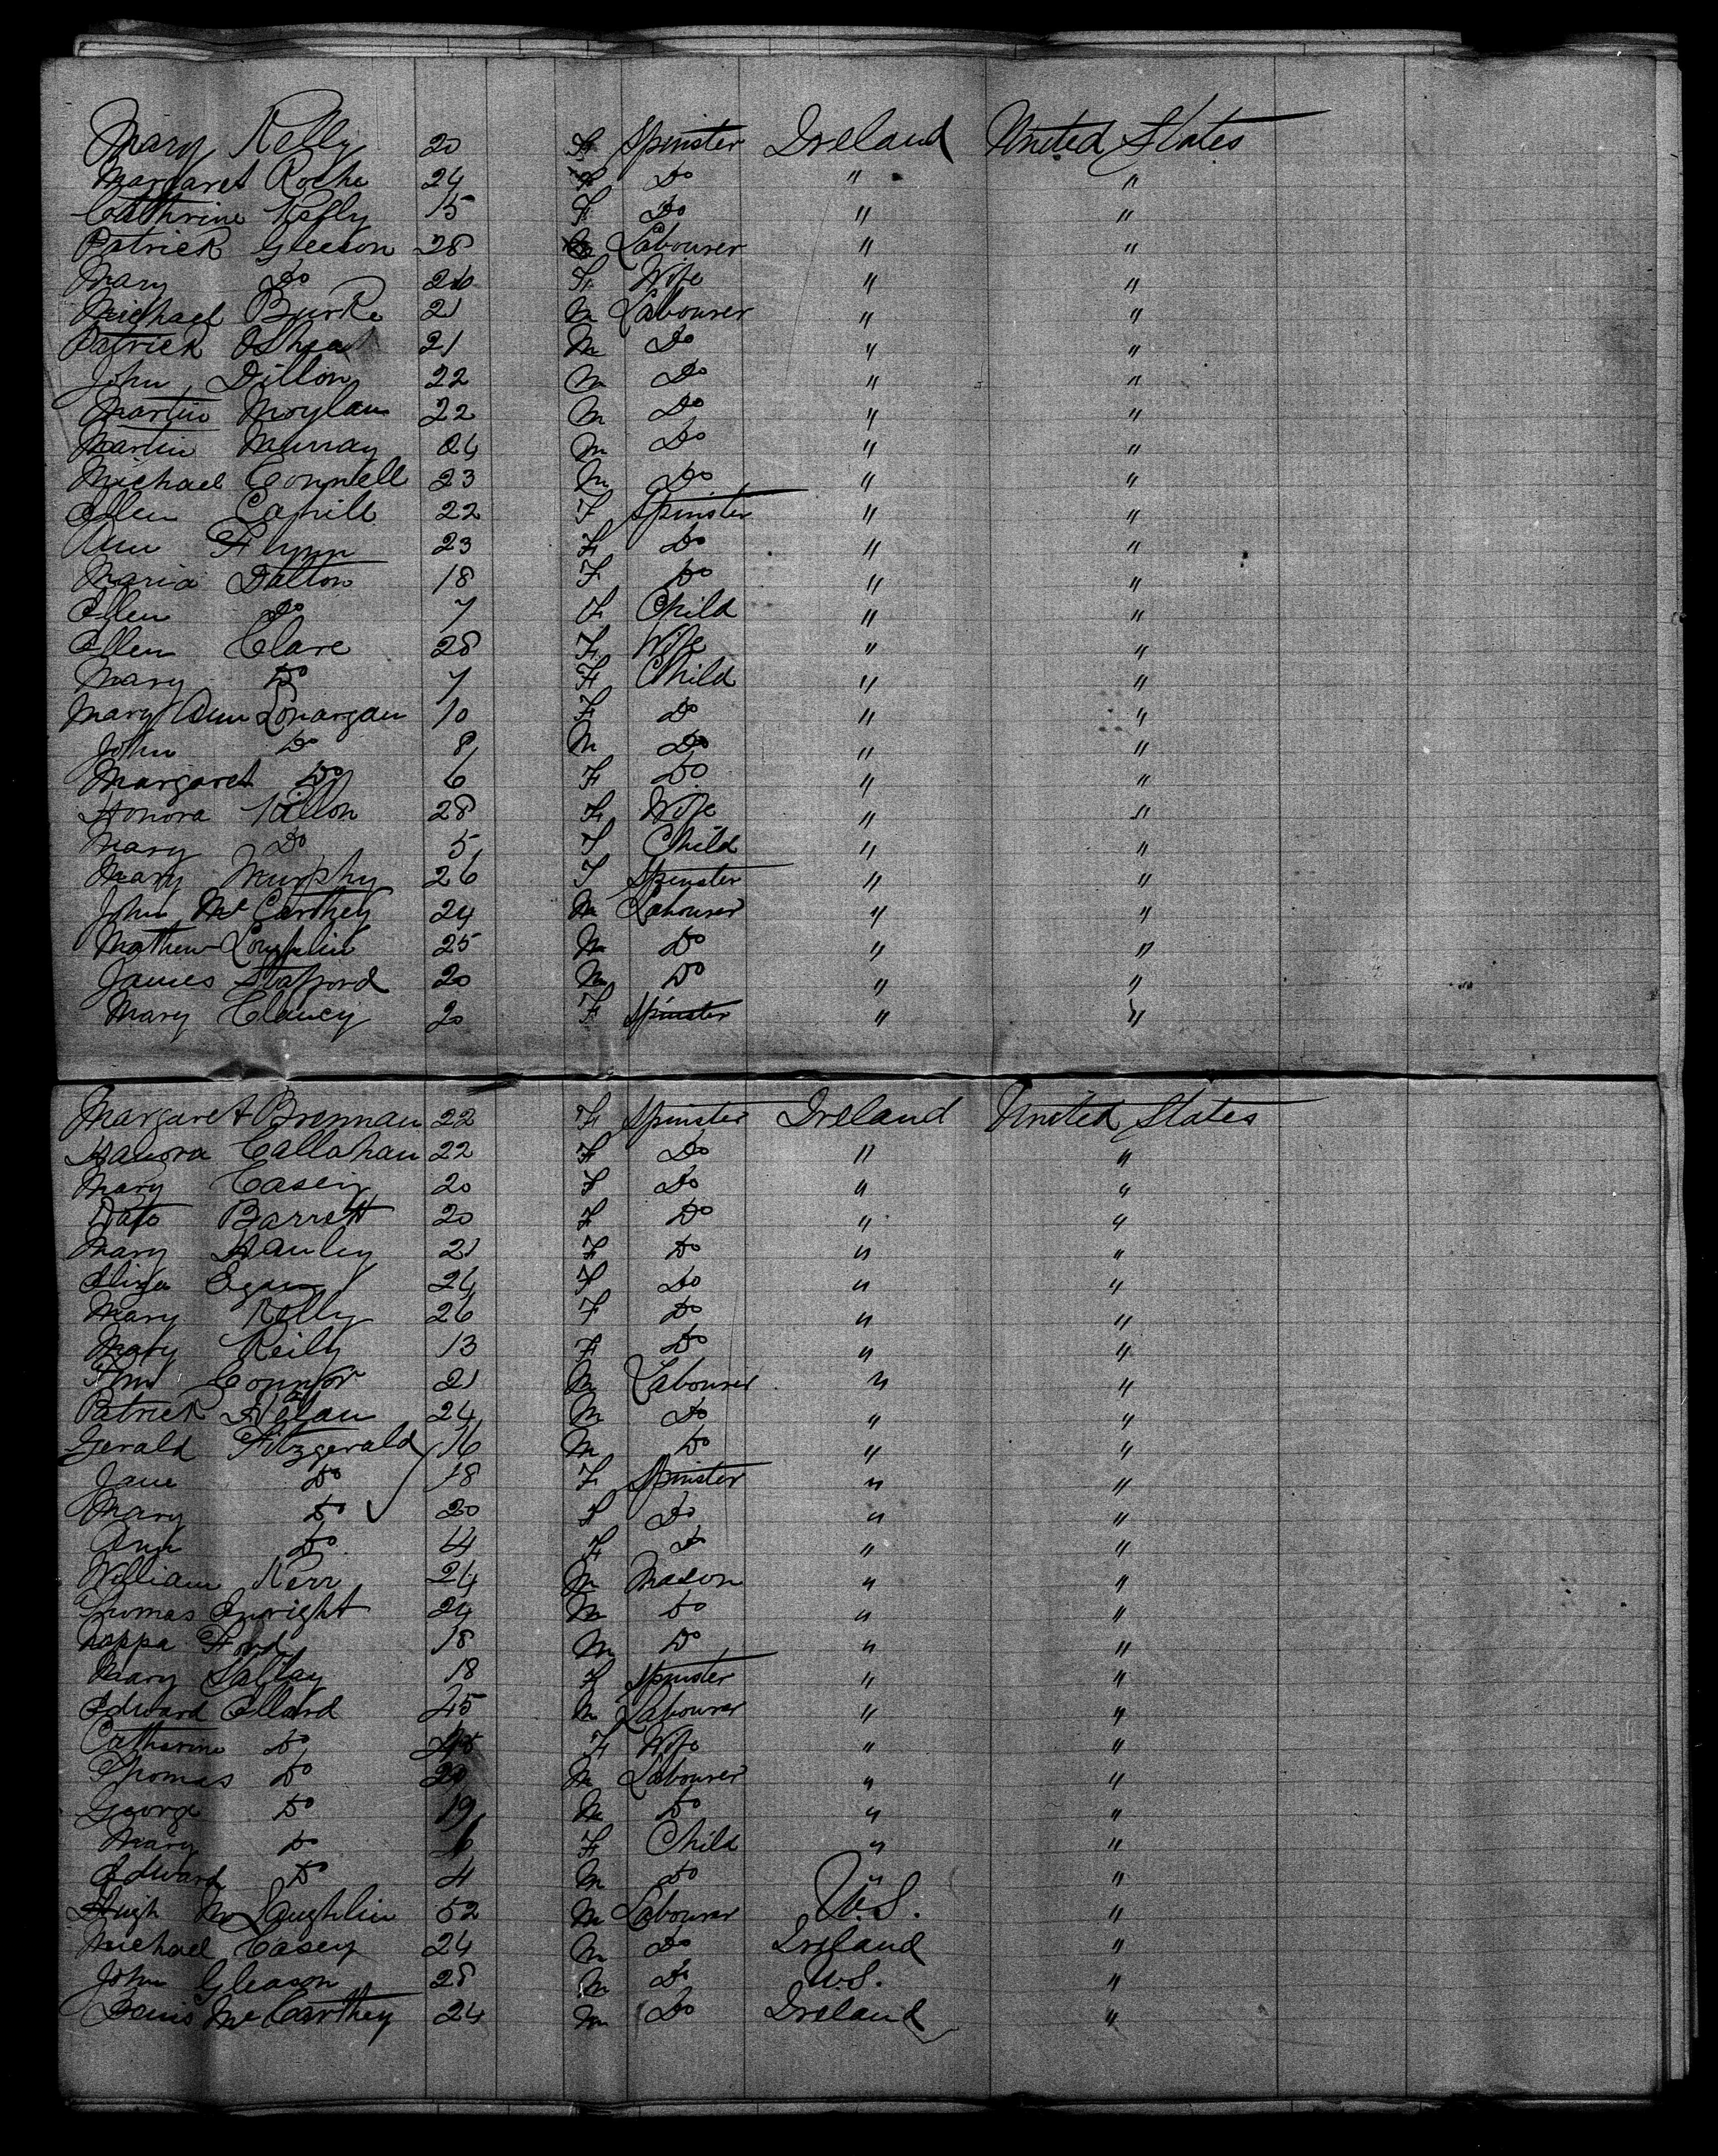 Mary Kelly 20 F Spinster Ireland United States
Margaret Roche 24 F Do " "
Cathrine Kelly 15 F Do " "
Patrick Gleeson 28 Labourer " "
Mary Do 26 F Wife " "
Michael Burke 21 M Labourer " "
Patrick OShea 21 M Do " "
John Dillon 22 M Do " "
Martin Moylan 22 M Do " "
Martin Murray 24 M Do " "
Michael Connell 23 M Do " "
Ellen Cahill 22 F Spinster " "
Ann Flynn 23 F Do " "
Maria Dalton 18 F Do " "
Ellen Do 7 F Child " "
Ellen Clare 28 F Wife " "
Mary Do 7 F Child " "
Mary Ann Lonargan 10 F Do " "
John Do 8 M Do " "
Margaret Do 6 F Do " "
Honora 28 F Wife " "
Mary Do 5 F Child " "
Mary Murphy 26 F Spinster " "
John McCarthey 24 M Labourer " "
Mathew Loughlin 25 M Do " "
James Stafford 20 M Do " "
Mary Clancy 20 F Spinster " "
Margaret Brennan 22 F Spinster Ireland United States
Hanora Callahan 22 F Do " "
Mary Casey 20 F Do " "
Barrett 20 F Do " "
Mary Hanley 21 F Do " "
Eliza Egan 24 F Do " "
Mary Kelly 26 F Do " "
Mary Reily 13 F Do " "
Connor 21 M Labourer " "
Patrick 24 M Do " "
Gerald Fitzgerald 16 M Do " "
Jane Do 18 F Spinster " "
Mary Do 20 F Do " "
Ann Do 14 F Do " "
William Kerr 24 M Mason " "
Thomas Enright 24 M Do " "
Ford 18 M Do " "
Mary 18 F Spinster " "
Edward Ellard 45 M Labourer " "
Catherine Do F Wife " "
Thomas Do 20 M Labourer " "
George Do 19 M Do " "
Mary Do 6 F Child " "
Edward Do 4 M Do " "
Hugh McLaughlin 52 M Labourer U.S. "
Michael Casey 24 M Do Ireland "
John Gleason 28 M Do U.S. "
Denis McCarthey 24 M Do Ireland "